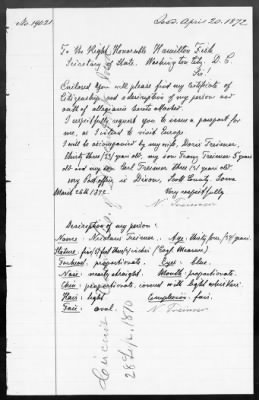 No. 14021
Iss'd April 20. 1872
To the Right Honorable Hamilton Fish
Secretary of State. Washington City D. C
Sir!
Enclosed you will please find my certificate of
Citizenship and a description of my person and
oath of allegiance hereto attached.
I respectfully request you to issue a passport for
me, as I intend to visit Europe
I will be accompanied by my wife, Maria Treimer
thirty three /33/ years old, my son Franz Treimer 5 years
old and my son Carl Treimer three /3/ years old
my Post office is Dixon, Scott County, Iowa
March 26th 1872. Very respectfully
N Treimer
Description of my person:
Name: Nicolaus Treimer. Age: thirty four /34/ years.
Stature: five /5/ feet
Forehead: proportionate. Eyes: blue.
Nose: nearly straight. Mouth: proportionate.
Chin: proportionate, covered will light whiskers.
Hair: light Complexion: fair.
Face: oval. N Treimer
Circuit
28 Sept. 1870